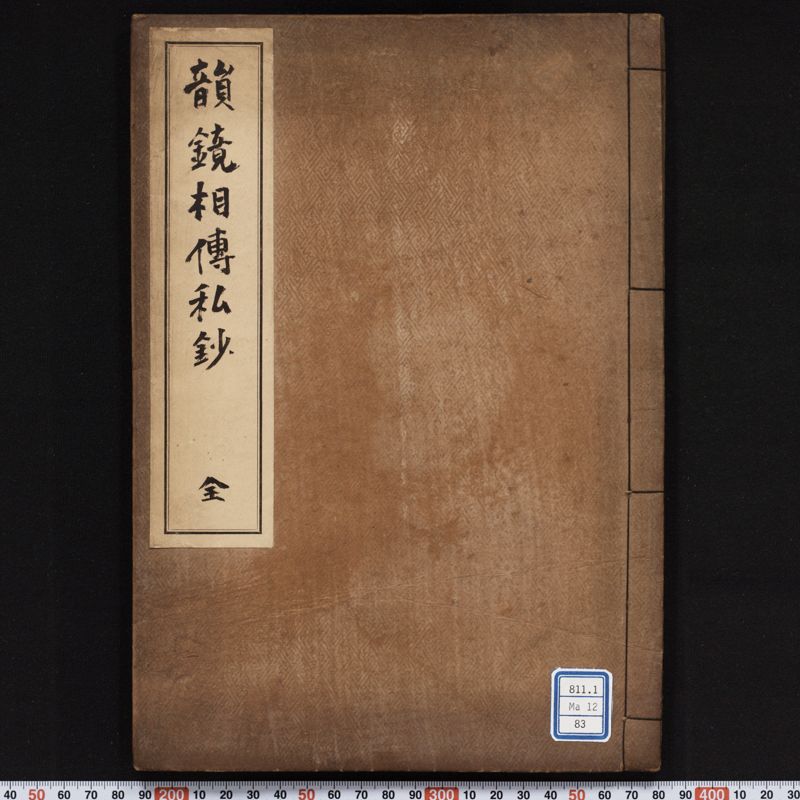 韻鏡相傳私鈔
全
811.1
Ma 12
83
40 50 60 70 80 90 200 10 20 30 40 50 60 70 80 90 300 10 20 30 40 50 60 70 80 90 400 10 20 30